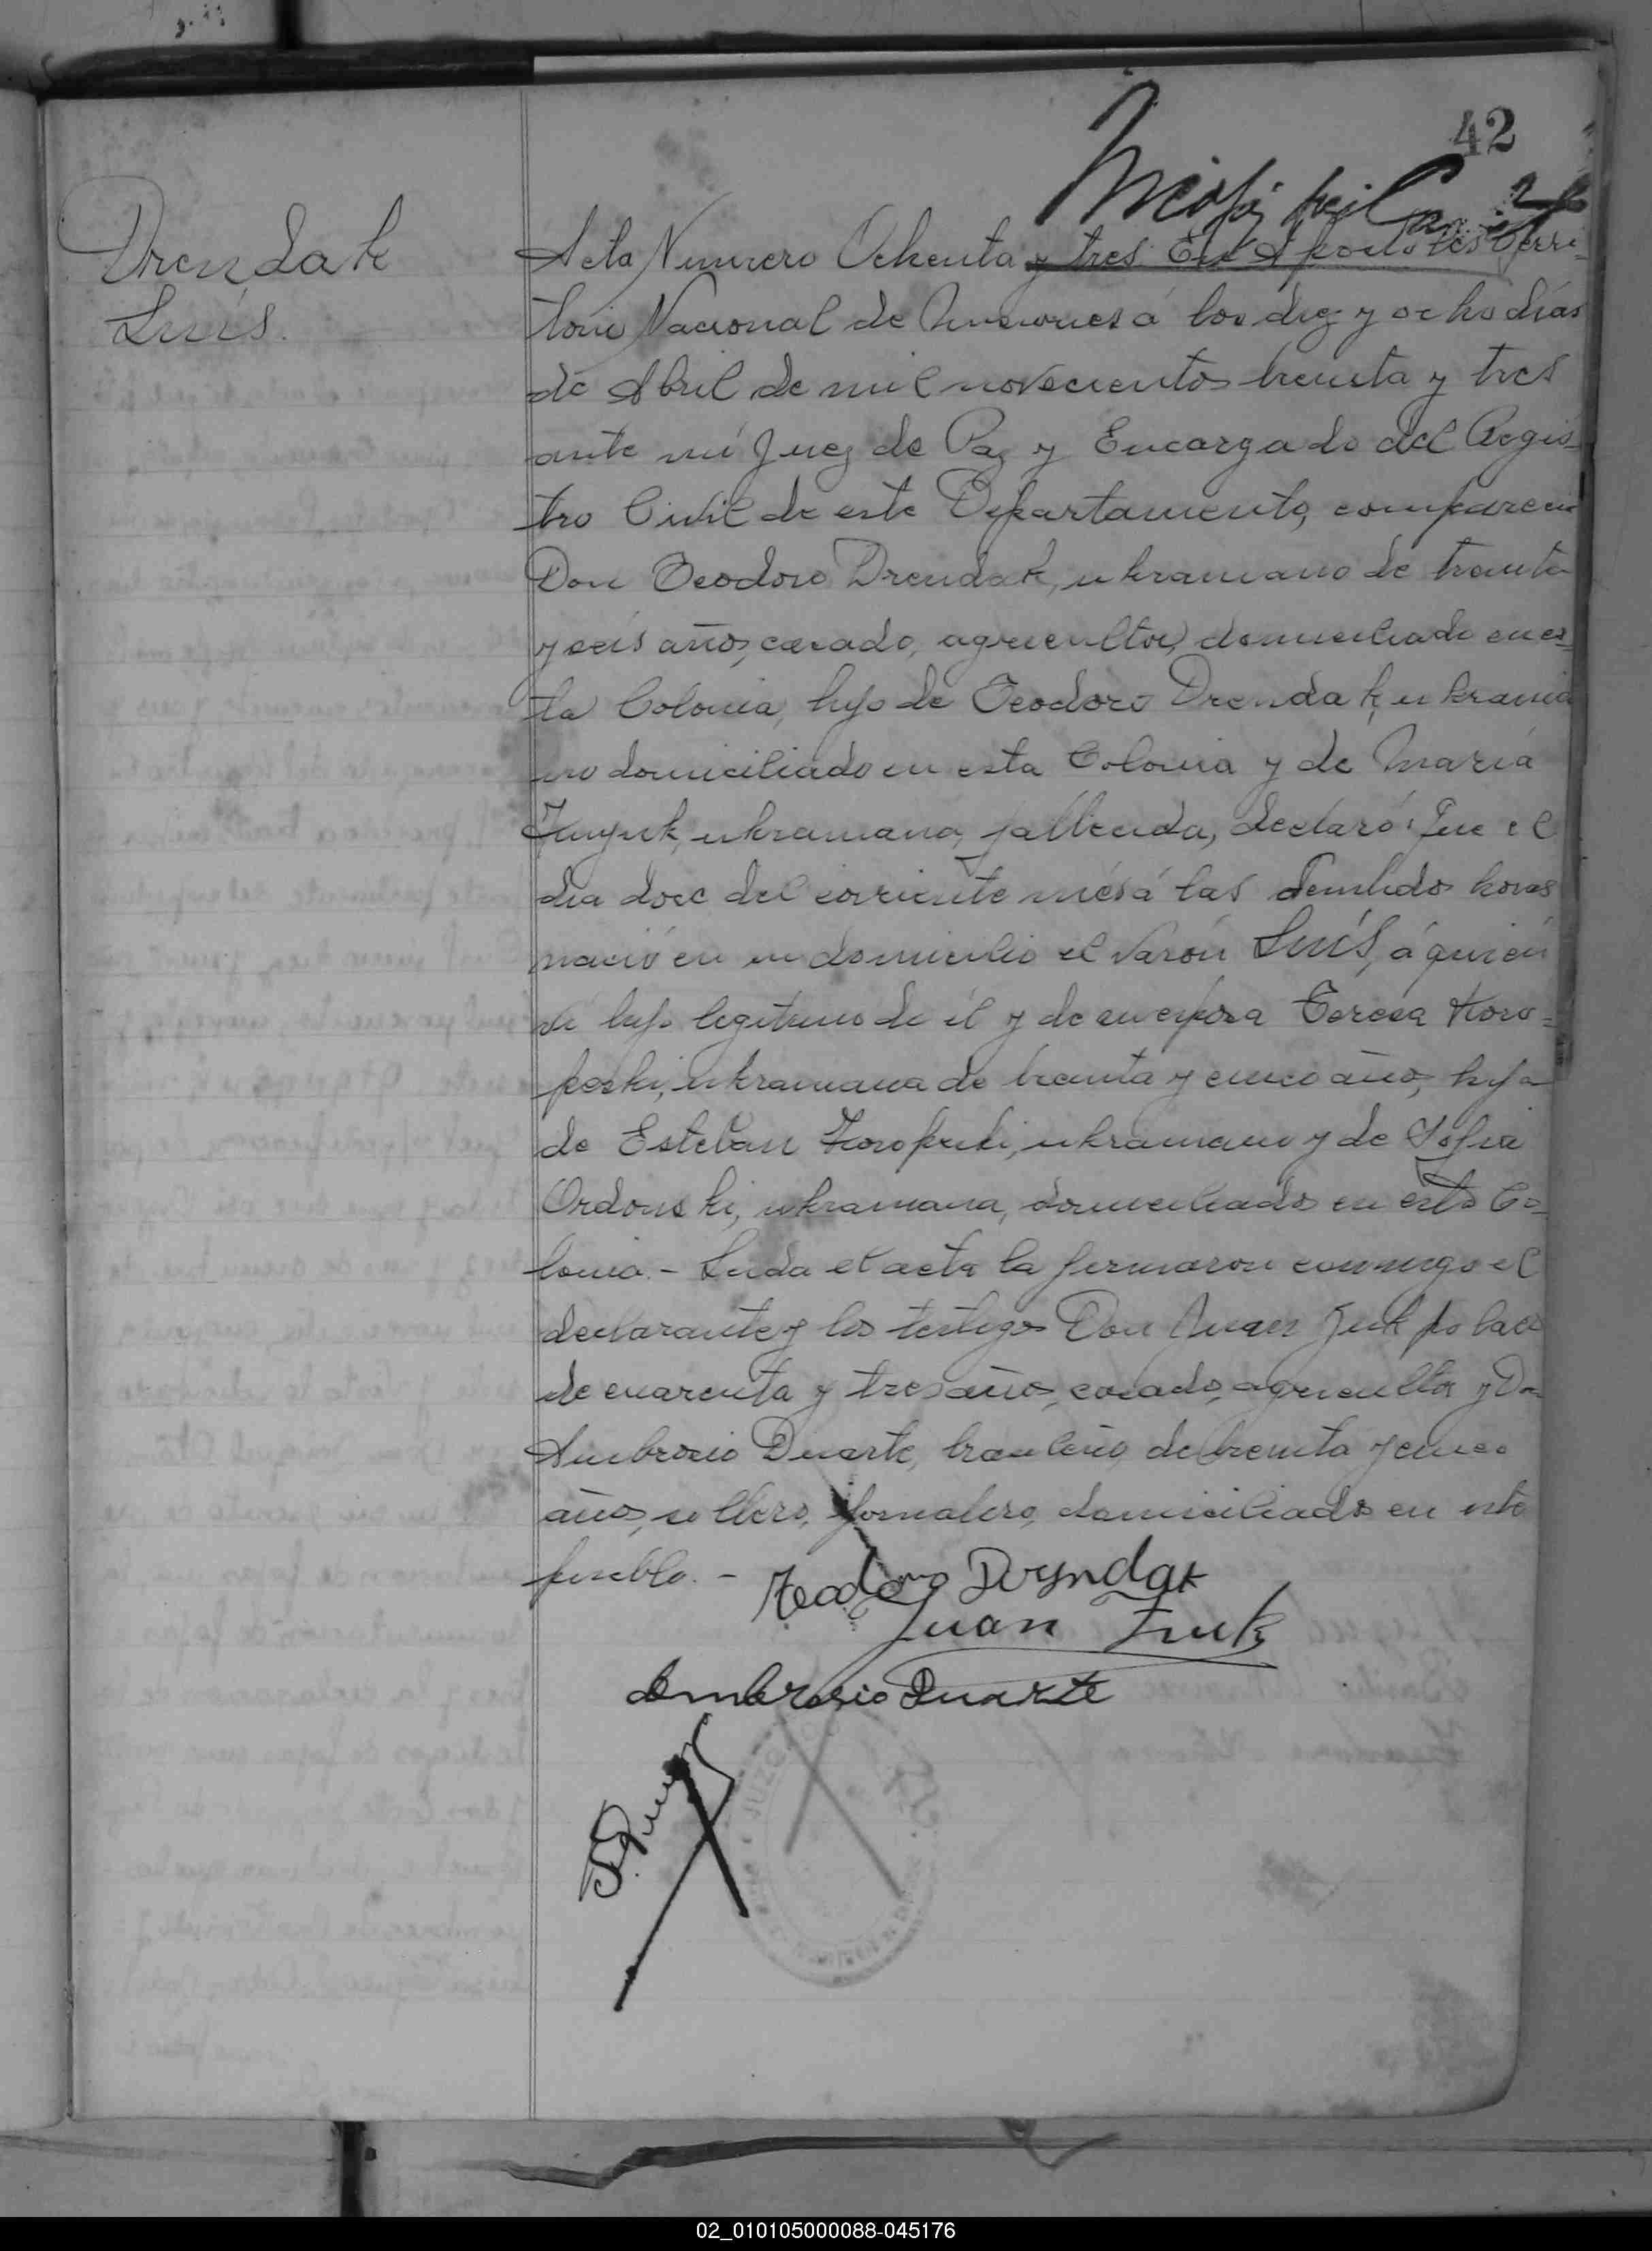 42
Drendak
Luís.
Acta Numero Ochenta y tres. En Apostoles Terri-
torio Nacional de Misiones á los diez y ocho días
de Abril de mil novecientos treinta y tres
ante mí Juez de Paz y Encargado del Regis-
tro Civil de este Departamento, compareció
Don Teodoro Drendak, ukraniano de treinta
y seis años, casado, agricultor, domiciliado en es-
ta Colonia, hijo de Teodoro Drendak, ukrania
no domiciliado en esta Colonia y de María
ukraniana, fallecida, declaró: Que el
dia doce del corriente més á las horas
nació en su domicilio el varón Luís, á quién
hijo legitimo de él y de su esposa Teresa Koro-
peski, ukraniana de treinta y cinco años, hija
de Esteban ukraniano y de Sofia
Ordonski, ukraniana, domiciliados en esta Co-
lonia. - Leida el acta la firmaron conmigo el
declarante y los testigos Don Juan Zuk polaco
de cuarenta y tres años, casado, agricultor y Don
Ambrosio Duarte, brasileño, de treinta y cinco
años, soltero, jornalero, domiciliados en este
pueblo. -
Teodoro Dryndak
Juan Zuk
Ambrosio Duarte
JUZGADO
02_010105000088-045176